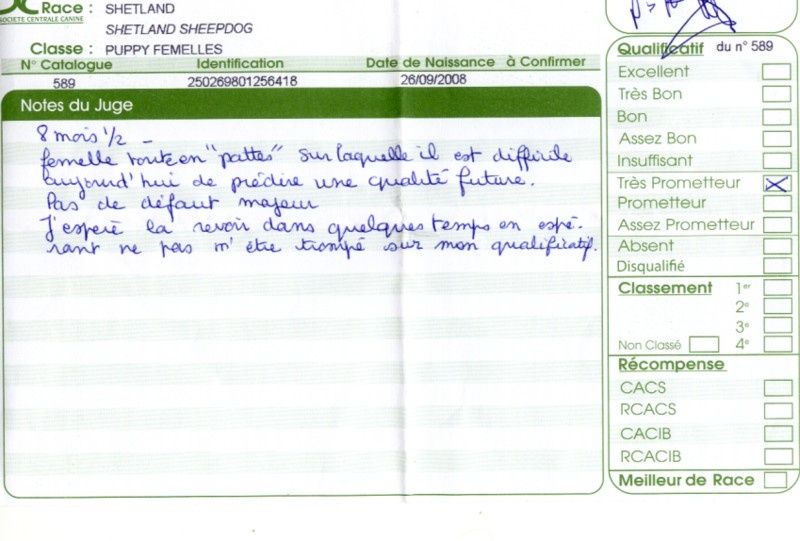 Race : SHETLAND
SOCIETE CENTRALE CANINE
SHETLAND SHEEPDOG
Classe : PUPPY FEMELLES
N° Catalogue Identification Date de Naissance à Confirmer
589 250269801256418 26/09/2008
Notes du Juge
8 mois 1/2 -
femelle toute en "pattes" sur laquelle il est difficile
aujourd'hui de prédire une qualité future.
Pas de défaut majeur
J'espère la revoir dans quelques temps en espé-
rant ne pas m'être trompé sur mon qualificatif.
Qualificatif du n° 589
Excellent
Très Bon
Bon
Assez Bon
Insuffisant
Très Prometteur X
Prometteur
Assez Prometteur
Absent
Disqualifié
Classement 1er
2e
3e
Non Classé 4e
Récompense
CACS
RCACS
CACIB
RCACIB
Meilleur de Race